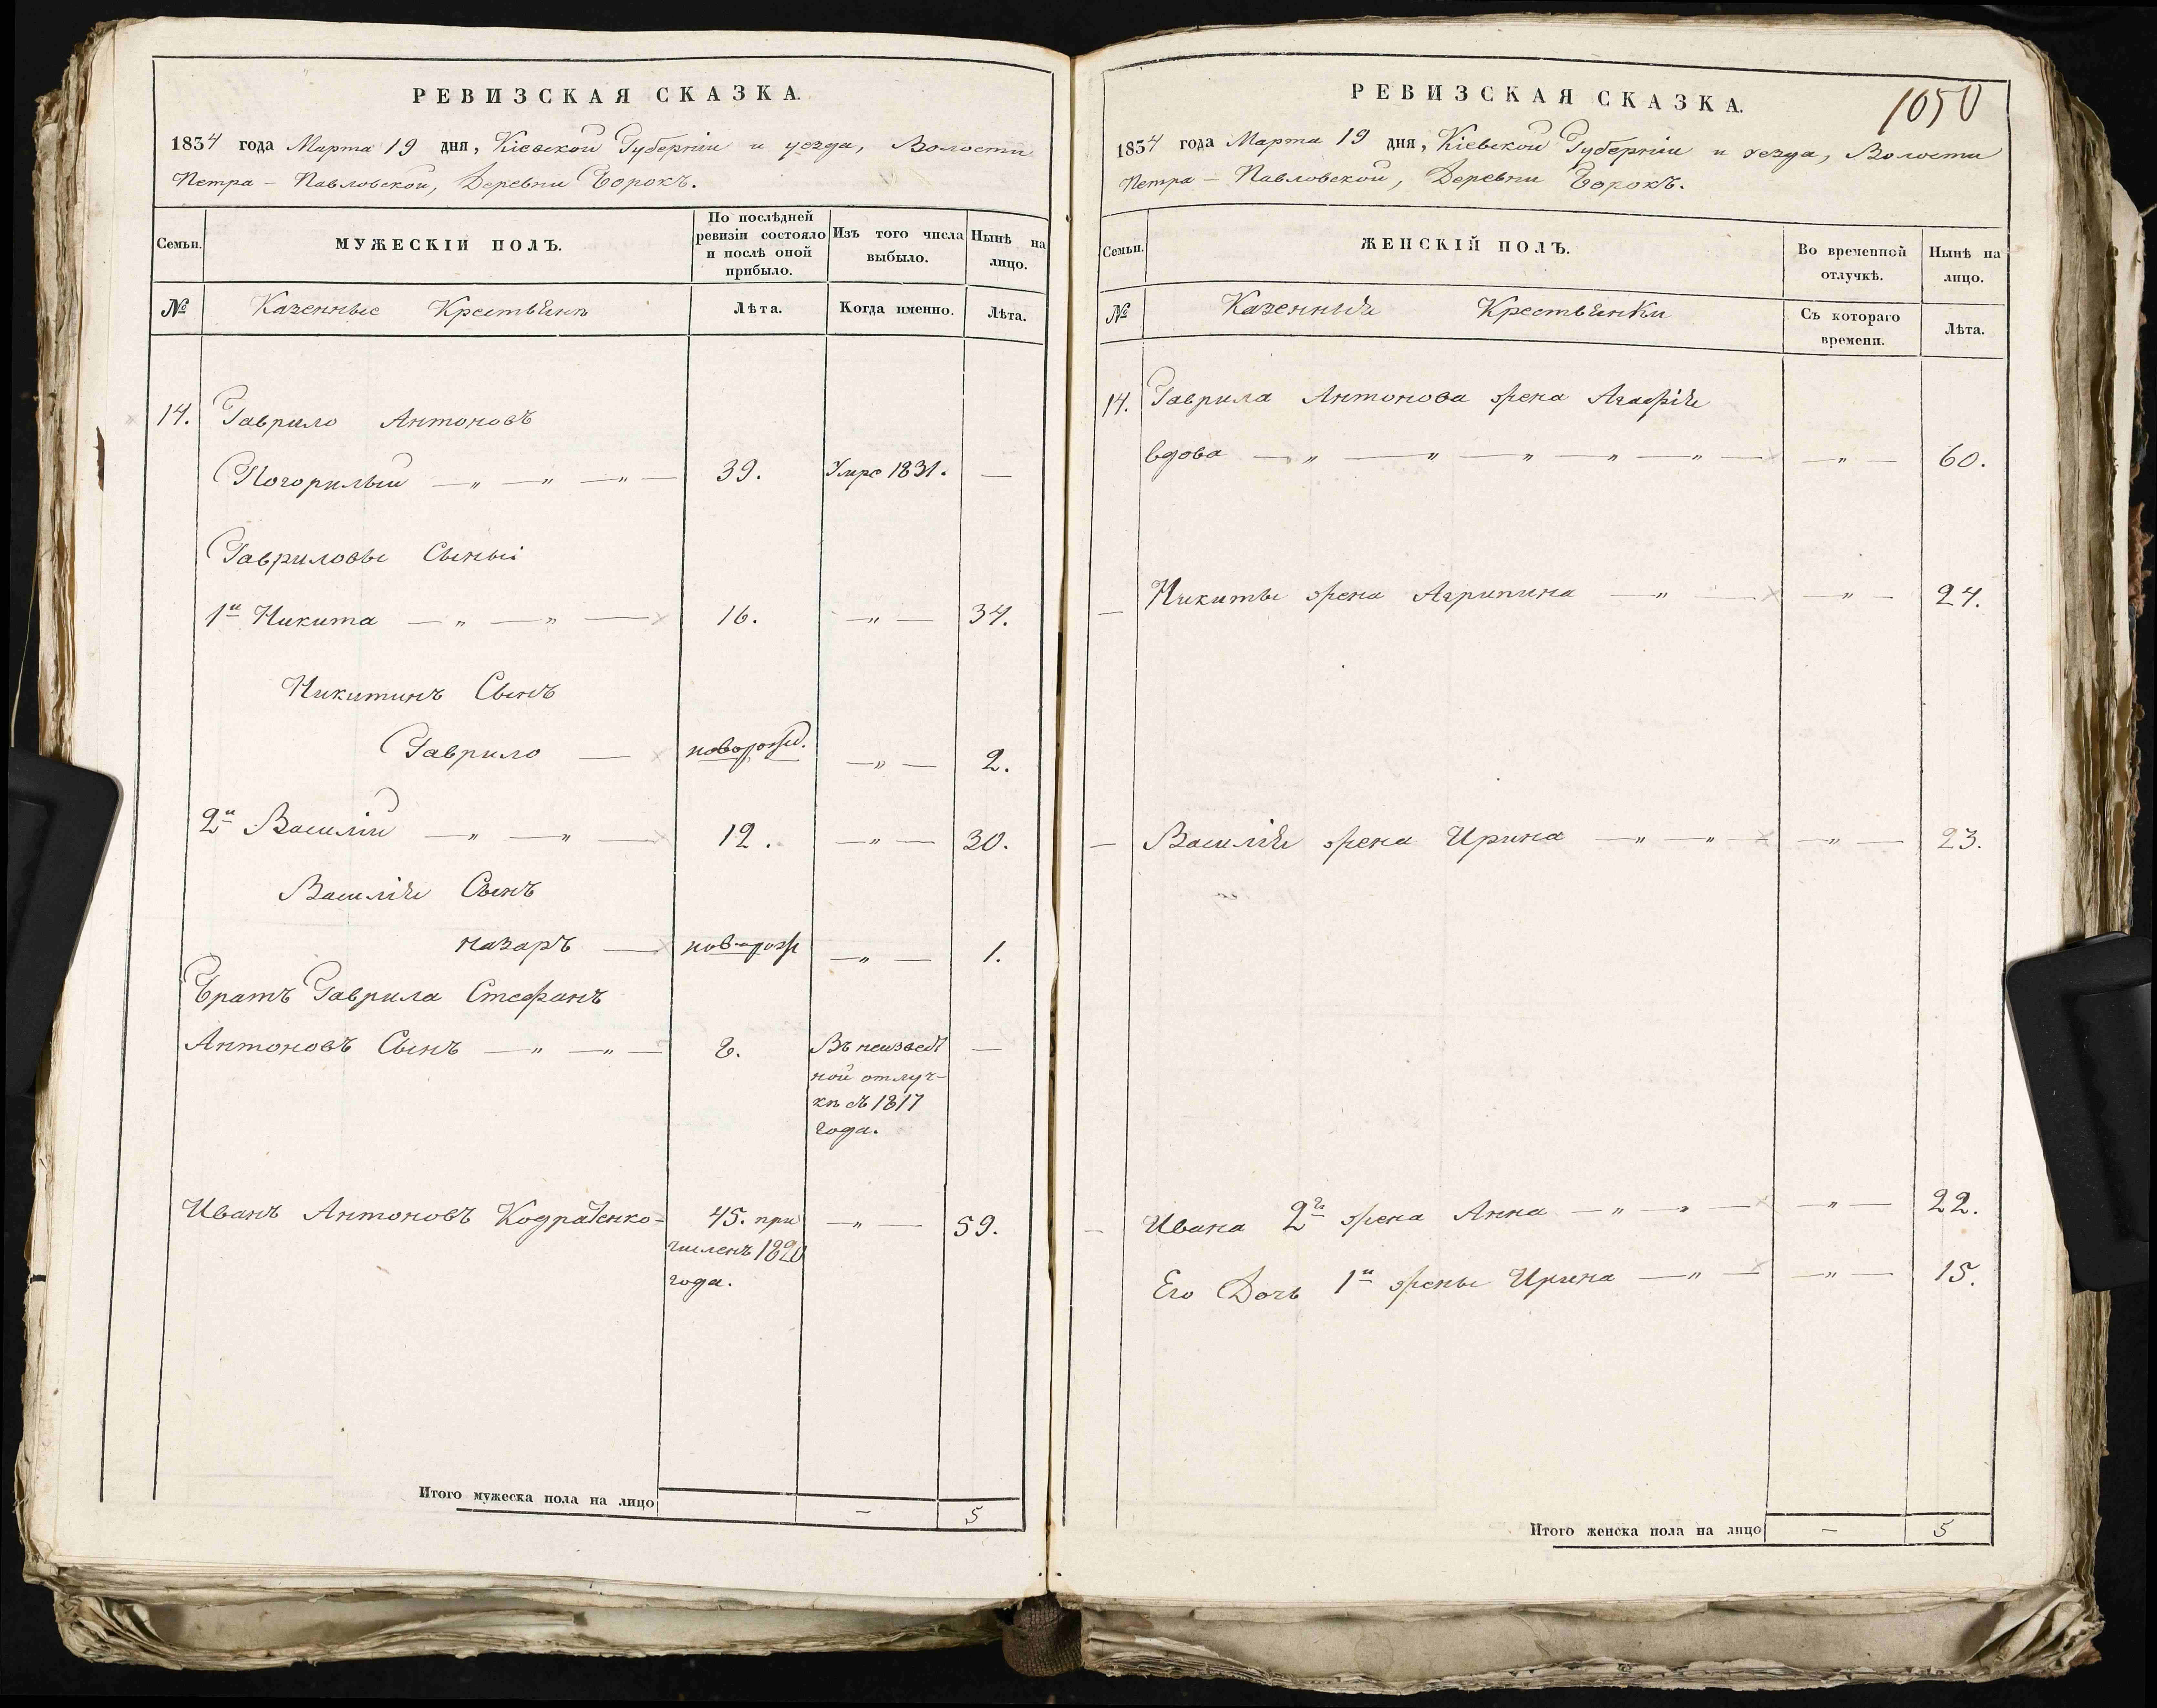 РЕВИЗСКАЯ СКАЗКА.
1834 года Марта 19 дня, Кіевской Губерніи и уезда, Волости
Петра – Павловской, Деревни Борокъ.
Семьи.
МУЖЕСКІЙ ПОЛЪ.
По послѣдней ревизіи состояло и послѣ оной прибыло.
Изъ того числа выбыло.
Нынѣ на лицо.
№
Казенные Крестьяне
Лѣта.
Когда именно.
Лѣта.
14. Гаврило Антоновъ
Погорилый — „ — „ — „ — 39. Умре 1831. —
Гавриловы Сыны:
1й Никита — „ — „ — 16. — „ — 34.
Никитинъ Сынъ
Гаврило — новорожд. — „ — 2.
2й Василій — „ — „ — 12. — „ — 30.
Василія Сынъ
назаръ — новорож — „ — 1.
Братъ Гаврила Стефанъ
Антоновъ Сынъ — „ — „ — 8. Въ неизвест —
ной отлуч-
ке съ 1817
года.
Иванъ Антоновъ Кодратенко - 45. при — „ — 59.
численъ 1820
года.
Итого мужеска пола на лицо — 5
РЕВИЗСКАЯ СКАЗКА.
1050
1834 года Марта 19 дня, Кіевской Губерніи и уезда, Волости
Петра – Павловской, Деревни Борокъ.
Семьи.
ЖЕНСКІЙ ПОЛЪ.
Во временной отлучкѣ.
Нынѣ на лицо.
№
Казенныя Крестьянки
Съ котораго времени.
Лѣта.
14. Гаврила Антонова жена Агафія
вдова — „ — „ — „ — „ — „ — — „ — 60.
— Никиты жена Агрипина — „ — — „ — 24.
— Василія жена Ирина — „ — „ — — „ — 23.
— Ивана 2я жена Анна — „ — „ — „ — 22.
Его Дочь 1й жены Ирина — „ — — „ — 15.
Итого женска пола на лицо — 5